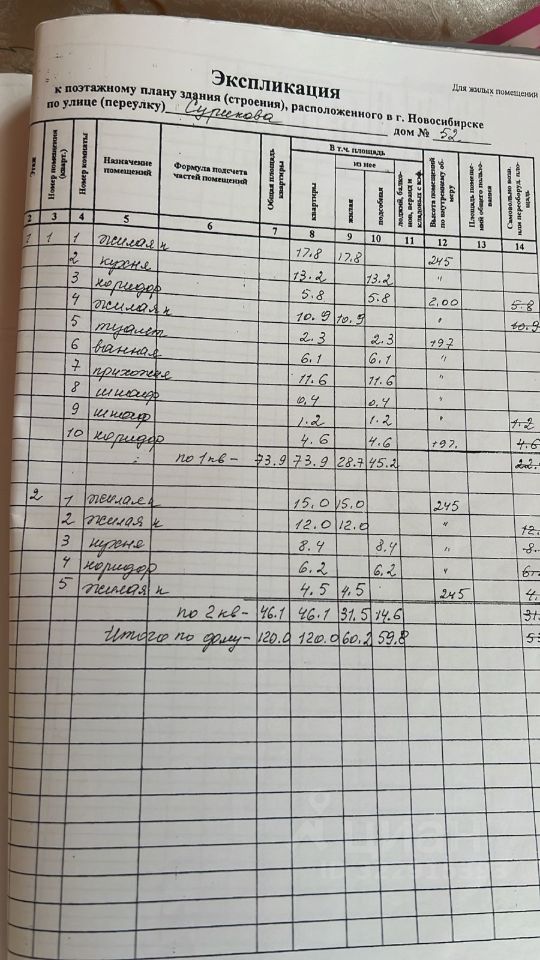 Экспликация
Для жилых помещений
к поэтажному плану здания (строения), расположенного в г. Новосибирске
по улице (переулку) Сурикова дом № 52
Этаж
Номер помещения (кварт.)
Номер комнаты
Назначение помещений
Формула подсчета частей помещений
Общая площадь квартиры
В т.ч. площадь
из нее
квартиры
жилая
подсобная
лоджий, балконов, веранд и кладовых с коэф.
Высота помещений по внутреннему обмеру
Площадь помещений общего пользования
Самовольно возв. или переоборуд. площадь
2 3 4 5 6 7 8 9 10 11 12 13 14
1 1 1 жилая к 17.8 17.8 245
2 кухня 13.2 13.2 "
3 коридор 5.8 5.8 2,00 5.8
4 жилая к 10.9 10.9 " 10.9
5 туалет 2.3 2.3 197
6 ванная 6.1 6.1 "
7 прихожая 11.6 11.6 "
8 шкаф 0,4 0,4 "
9 шкаф 1.2 1.2 " 1.2
10 коридор 4.6 4.6 197. 4.6
по 1 кв - 73.9 73.9 28.7 45.2 22.
2 1 жилая к 15,0 15.0 245
2 жилая к 12.0 12.0 " 12.
3 кухня 8.4 8.4 " 8.
4 коридор 6.2 6,2 " 6.
5 жилая к 4.5 4,5 245 4.
по 2 кв - 46.1 46.1 31.5 14.6 31.
Итого по дому - 120.0 120.0 60.2 59,8 53
циан